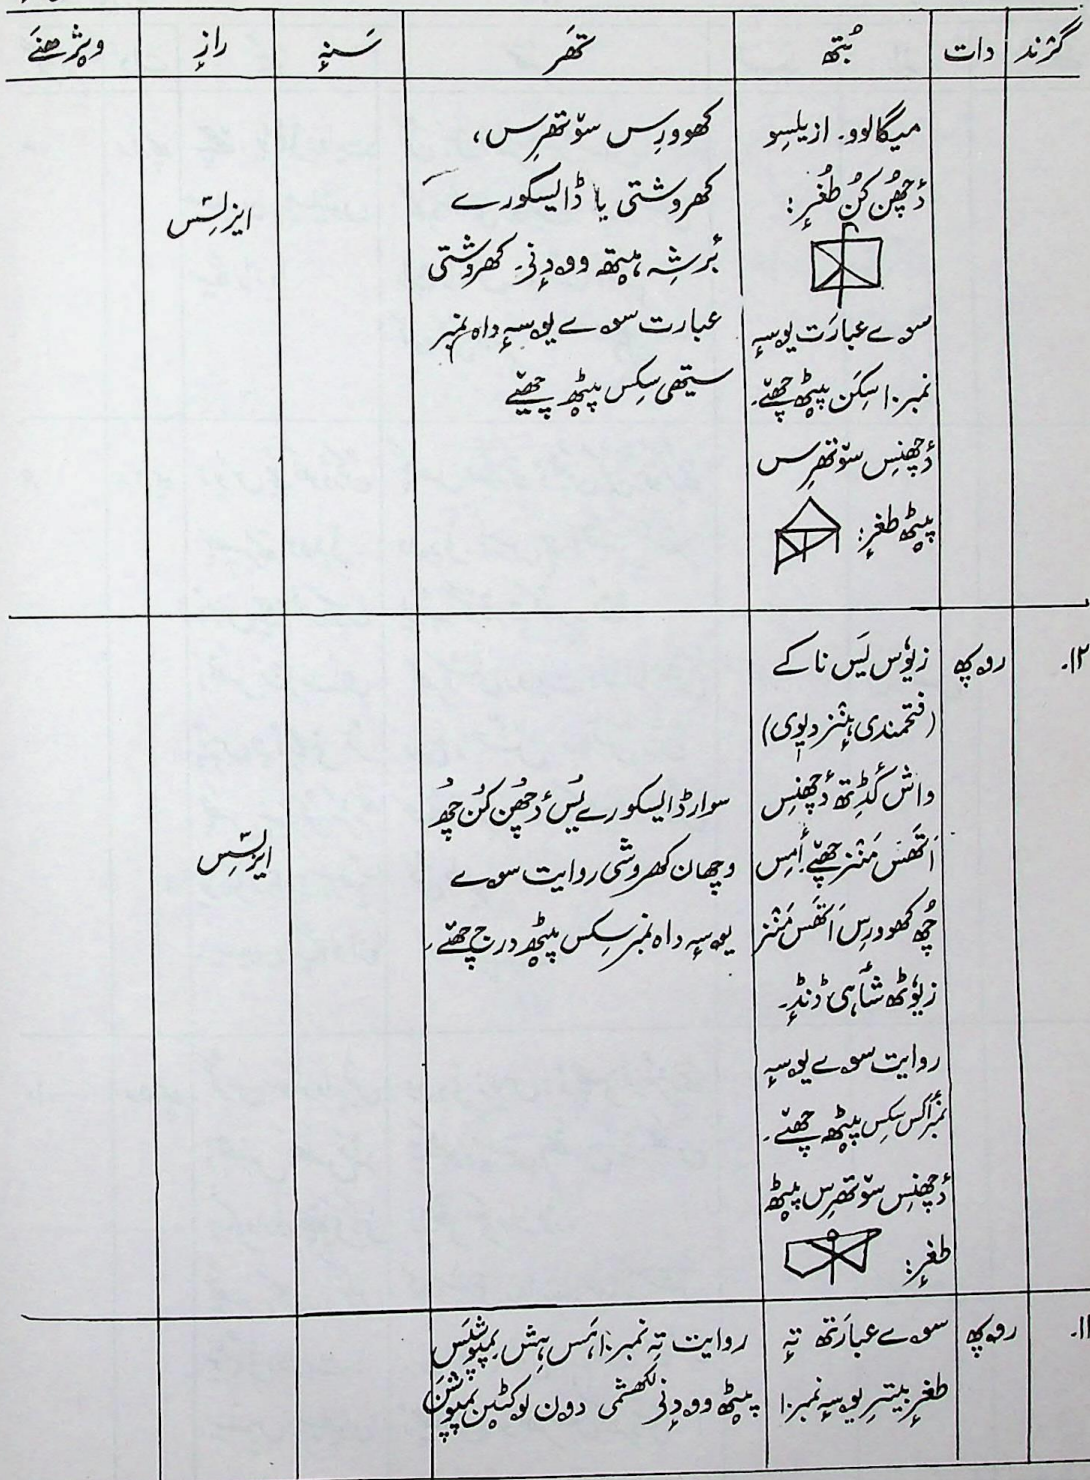 گژند دات بُتھ تھَر سَنہٕ رازٕ وێژھنَے
میگالوو۔ ازیلسو
دٔچھُن کُن طُغرٕ:
سوے عبارَت یوسہٕ
نمبر ۱۰ سِکَن پؠٹھ چھےٚ۔
دٔچھنِس سۆتھرِس
پؠٹھ طغرٕ:
کھوورِس سۆتھرِس،
کھروشتی یا ڈالیسکورے
بُرشہِ ہیتھ وودٕنی۔ کھروشتی
عبارت سوے یوسہٕ داہ نمبر
سیتھی سِکس پؠٹھ چھےٚ
ایزلِسٚ
۱۲۔ روپھ
زیوٗس یَس ناکے
(فتحمندی ہٕنز دیوی)
واش کٔڈِتھ دٔچھنِس
اَتھَس مَنٛز چھےٚ۔ أمِس
چُھ کھوورِس اَتھَس مَنٛز
زیوٗٹھ شاہی ڈنڈٕ۔
روایت سوے یوسہٕ
نمبر أکس سِکس پؠٹھ چھےٚ۔
دٔچھنِس سۆتھرِس پؠٹھ
طغرٕ:
سوار ڈالیسکورے یُس دٔچھُن کُن چُھ
وچھان کھروشی روایت سوے
یوسہٕ داہ نمبر سِکس پؠٹھ درج چھےٚ۔
ایزلِسٚ
۱۱۔ روپھ
سوے عبارَتھ تہٕ
طغرٕ بیتر یوسہٕ نمبر ۱۰
روایت تہٕ نمبر ۱۰ ہَس ہِش پمپوشَس
پؠٹھ وودٕنی لکھشمی دون لوکٹین پمپوشَن